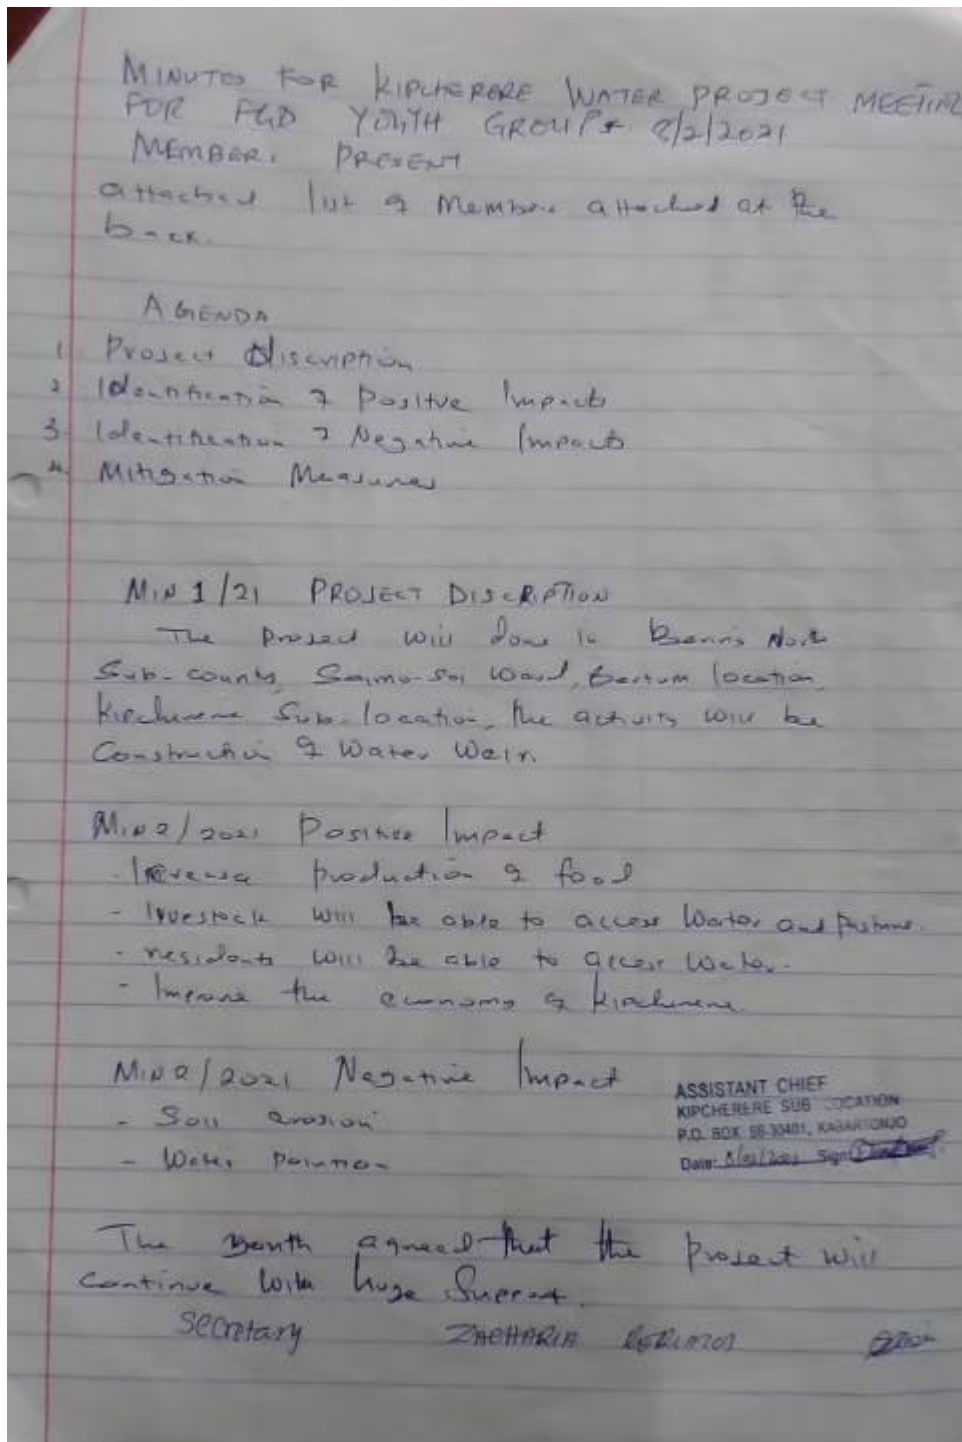 MINUTES FOR KIPCHERERE WATER PROJECT MEETING
FOR FGD YOUTH GROUP 8/2/2021
MEMBERS PRESENT
attached list of Members attached at the
back.
AGENDA
1 Project Discription
2 Identification of Positive Impacts
3 Identification of Negative Impacts
4 Mitigation Measures
MIN 1/21 PROJECT DISCRIPTION
The project will done in Baringo North
Sub-county, Saimo-Soi Ward, Bartum location,
Kipcherere Sub-location, the activity will be
Construction of Water Weir.
MIN 2/2021 Positive Impact
- Increase production of food
- livestock will be able to access Water and Pasture.
- residents will be able to access Water.
- Improve the economy of Kipcherere
MIN 2/2021 Negative Impact
- Soil erosion
- Water Polution
ASSISTANT CHIEF
KIPCHERERE SUB LOCATION
P.O. BOX 30401, KABARTONJO
Date: 8/02/2021 Sign
The youth agreed that the project will
continue with huge Support.
Secretary ZACHARIA